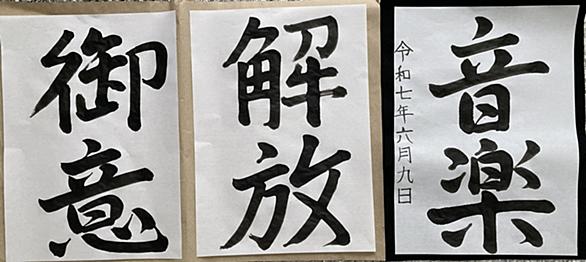 御意
解放
音楽
令和七年六月九日